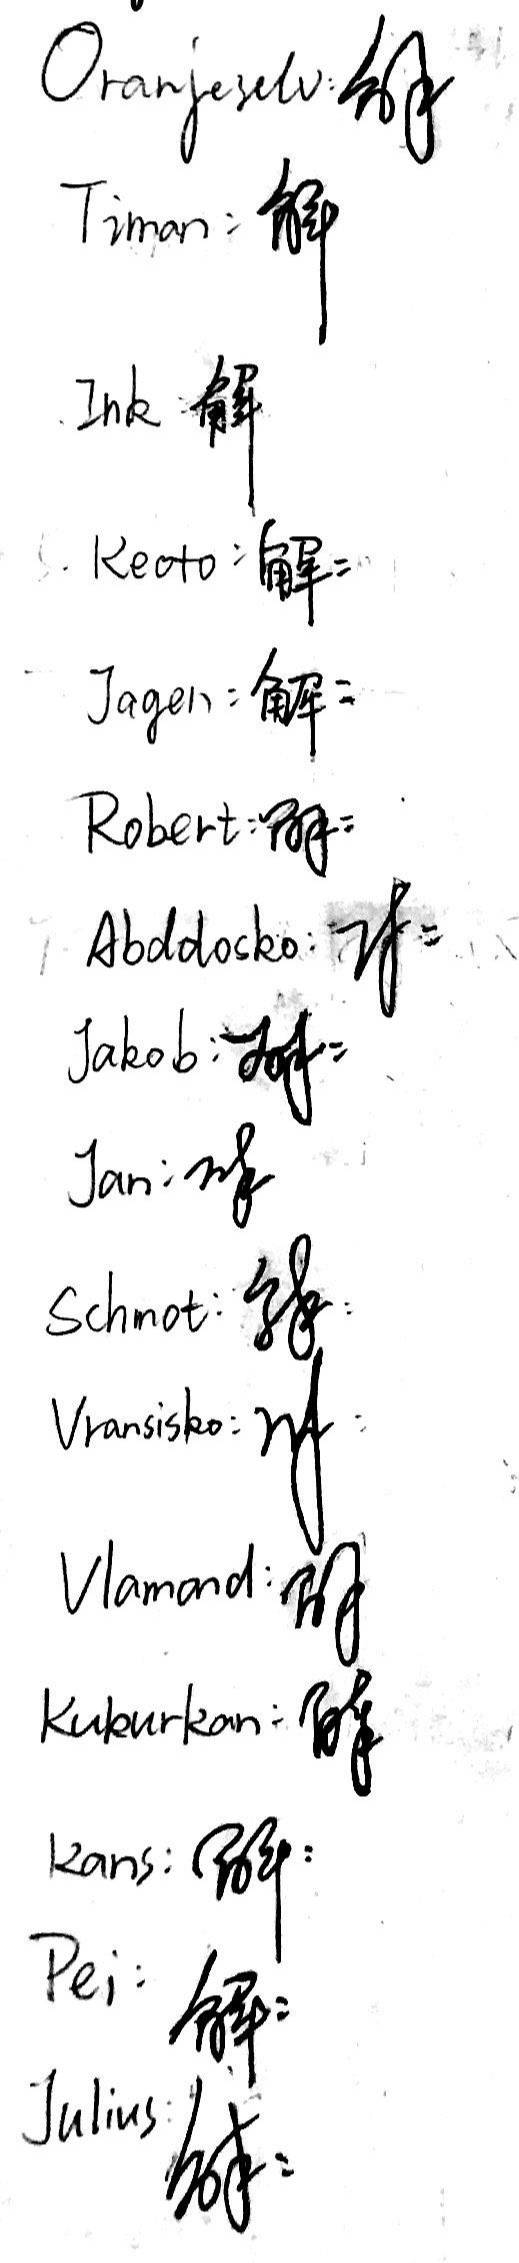 Oranjeselv: 解
Timan: 解
Ink 解
Keoto: 解:
Jagen: 解:
Robert: 解:
Abddosko: 解:
Jakob: 解:
Jan: 解
Schmot: 解:
Vransisko: 解:
Vlamand: 解
Kukurkan: 解
Kans: 解:
Pei: 解:
Julius: 解: